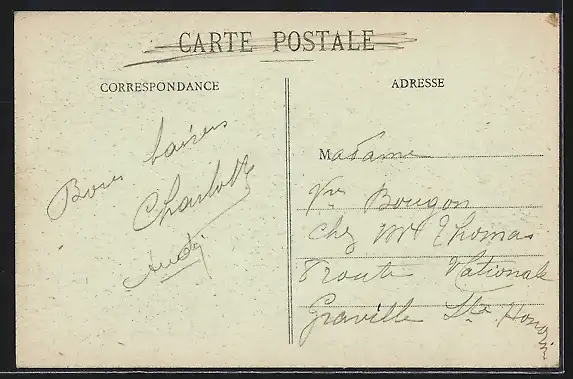 CARTE POSTALE
CORRESPONDANCE
ADRESSE
Bons baisers
Charlotte
Madame
Vve Bougon
chez Mr Thomas
route Nationale
Graville Ste Honorine